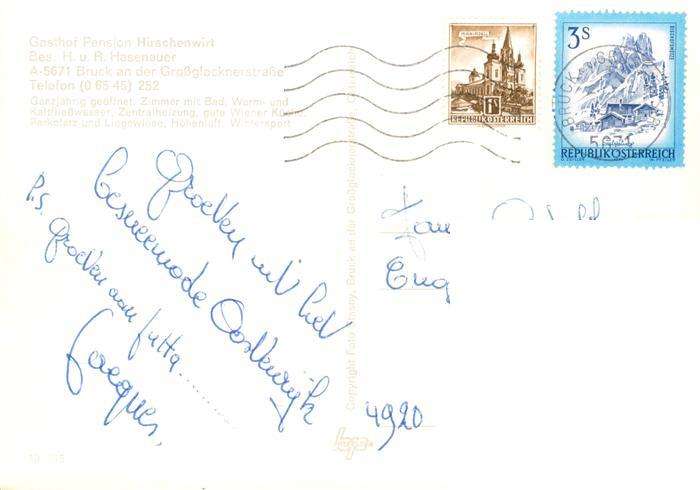 Gasthof Pension Hirschenwirt
Bes. H. u. R. Hasenauer
A-5671 Bruck an der Großglocknerstraße
Telefon (0 65 45) 252
Ganzjährig geöffnet. Zimmer mit Bad, Warm- und
Kaltfließwasser, Zentralheizung, gute Wiener Küche
Parkplatz und Liegewiese, Höhenluft, Wintersport
1S
3S
BRUCK
5671
REPUBLIK ÖSTERREICH
REPUBLIK ÖSTERREICH
Groeten uit het
besneeuwde Oostenrijk
Jacques.
P.S. Groeten van Jutta........
Jan
Eng
4920
Copyright Foto
Bruck an der Großglocknerstraße